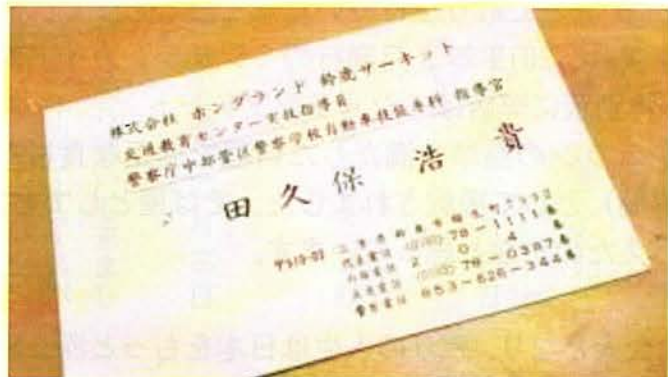 株式会社 ホンダランド 鈴鹿サーキット
交通教育センター実技指導員
警察庁中部管区警察学校自動車技能専科 指導官
田久保 浩貴
〒510-02 三重県鈴鹿市稲生町7992
代表電話 (0593)-78-1111番
内線電話 2 0 4 番
直通電話 (0593)-78-0387番
警察電話 853-626-344番